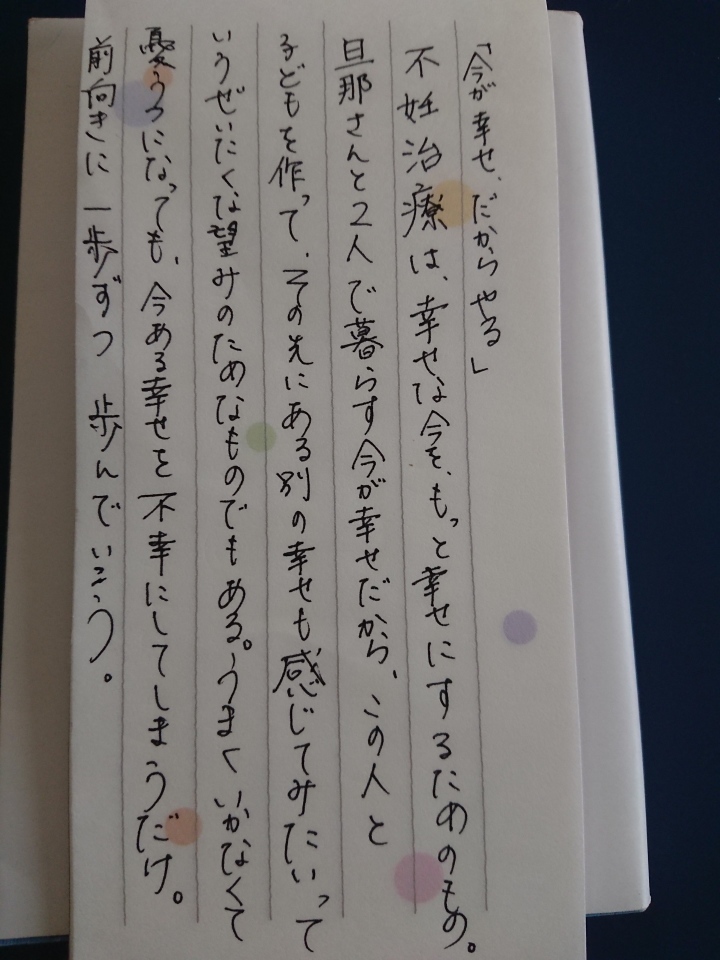 「今が幸せ、だからやる」
不妊治療は、幸せな今を、もっと幸せにするためのもの。
旦那さんと2人で暮らす今が幸せだから、この人と
子どもを作って、その先にある別の幸せも感じてみたいって
いうぜいたくな望みのためなものでもある。うまくいかなくて
憂うつになっても、今ある幸せを不幸にしてしまうだけ。
前向きに一歩ずつ 歩んでいこう。